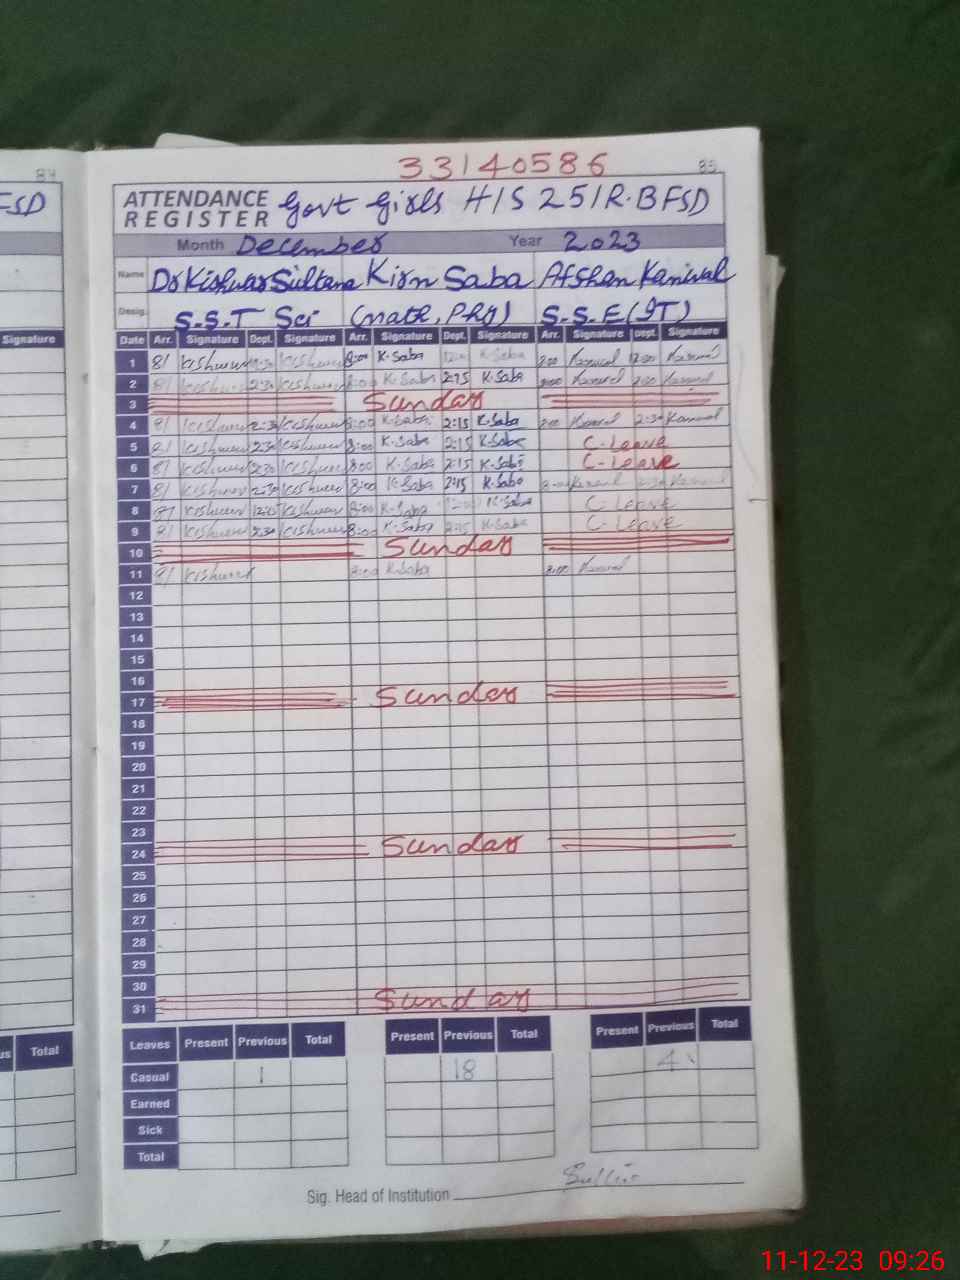 33140586
84 85
FSD
ATTENDANCE REGISTER Govt Girls H/S 251R.BFSD
Month December Year 2023
Name Dr Kishwar Sultana Kirn Saba Afshan Kanwal
Desig. S.S.T Sci (math, Phy) S.S.E (IT)
Signature Date Arr. Signature Dept. Signature Arr. Signature Dept. Signature Arr. Signature Dept. Signature
1 8/ Kishwar Kishwar 8:00 K.Saba K.Saba 8:00 Kanwal 12:00 Kanwal
2 8/ Kishwar 2:30 Kishwar 8:00 K.Saba 2:15 K.Saba 8:00 Kanwal Kanwal
3 Sunday
4 8/ Kishwar 2:30 Kishwar 8:00 K.Saba 2:15 K.Saba 8:00 Kanwal 2:30 Kanwal
5 8/ Kishwar 2:30 Kishwar 8:00 K.Saba 2:15 K.Saba C-Leave
6 8/ Kishwar 2:30 Kishwar 8:00 K.Saba 2:15 K.Saba C-Leave
7 8/ Kishwar 2:30 Kishwar 8:00 K.Saba 2:15 K.Saba Kanwal Kanwal
8 8/ Kishwar Kishwar 8:00 K.Saba K.Saba C-Leave
9 8/ Kishwar 2:30 Kishwar 8:00 K.Saba 2:15 K.Saba C-Leave
10 Sunday
11 8/ Kishwar 8:00 K.Saba 8:00 Kanwal
12
13
14
15
16
17 Sunday
18
19
20
21
22
23
24 Sunday
25
26
27
28
29
30
31 Sunday
Total Leaves Present Previous Total Present Previous Total Present Previous Total
Casual 1 18 4
Earned
Sick
Total
Sig. Head of Institution
11-12-23 09:26